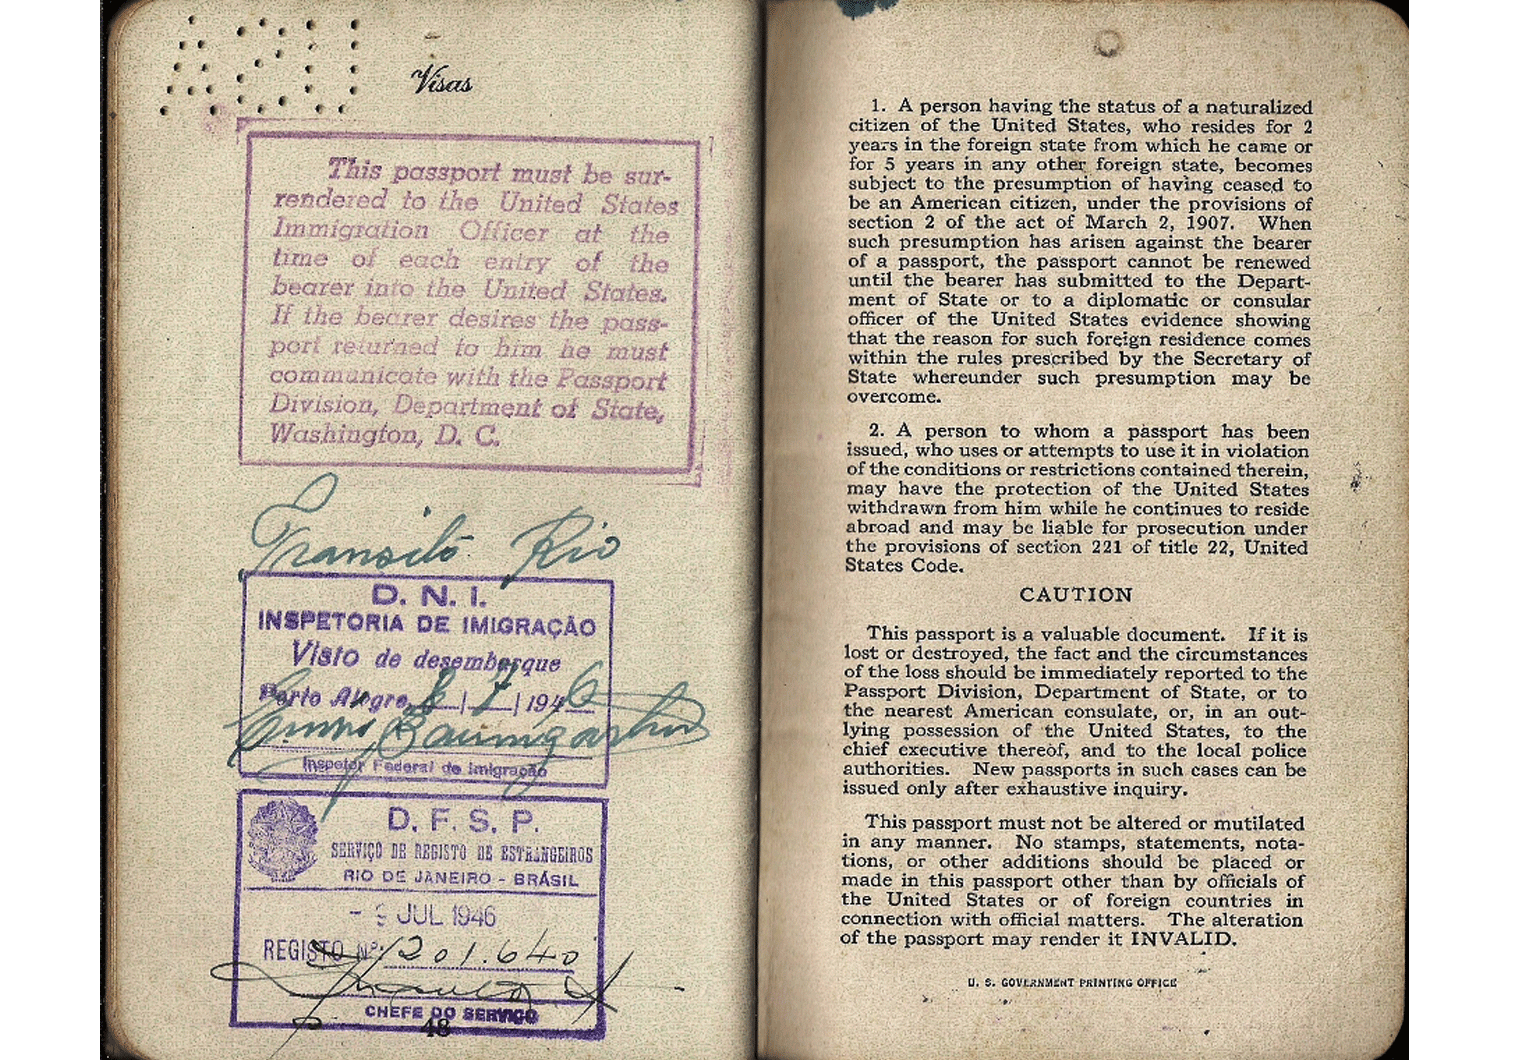 Visas
This passport must be sur-
rendered to the United States
Immigration Officer at the
time of each entry of the
bearer into the United States.
If the bearer desires the pass-
port returned to him he must
communicate with the Passport
Division, Department of State,
Washington, D. C.
Transito Rio
D. N. I.
INSPETORIA DE IMIGRAÇÃO
Visto de desembarque
Porto Alegre, 8 | 7 | 1946
Baumgarten
Inspetor Federal de Imigração
D. F. S. P.
SERVIÇO DE REGISTO DE ESTRANGEIROS
RIO DE JANEIRO - BRASIL
- 9 JUL 1946
REGISTO Nº 1201.640
CHEFE DO SERVIÇO
48
1. A person having the status of a naturalized
citizen of the United States, who resides for 2
years in the foreign state from which he came or
for 5 years in any other foreign state, becomes
subject to the presumption of having ceased to
be an American citizen, under the provisions of
section 2 of the act of March 2, 1907. When
such presumption has arisen against the bearer
of a passport, the passport cannot be renewed
until the bearer has submitted to the Depart-
ment of State or to a diplomatic or consular
officer of the United States evidence showing
that the reason for such foreign residence comes
within the rules prescribed by the Secretary of
State whereunder such presumption may be
overcome.
2. A person to whom a passport has been
issued, who uses or attempts to use it in violation
of the conditions or restrictions contained therein,
may have the protection of the United States
withdrawn from him while he continues to reside
abroad and may be liable for prosecution under
the provisions of section 221 of title 22, United
States Code.
CAUTION
This passport is a valuable document. If it is
lost or destroyed, the fact and the circumstances
of the loss should be immediately reported to the
Passport Division, Department of State, or to
the nearest American consulate, or, in an out-
lying possession of the United States, to the
chief executive thereof, and to the local police
authorities. New passports in such cases can be
issued only after exhaustive inquiry.
This passport must not be altered or mutilated
in any manner. No stamps, statements, nota-
tions, or other additions should be placed or
made in this passport other than by officials of
the United States or of foreign countries in
connection with official matters. The alteration
of the passport may render it INVALID.
U. S. GOVERNMENT PRINTING OFFICE